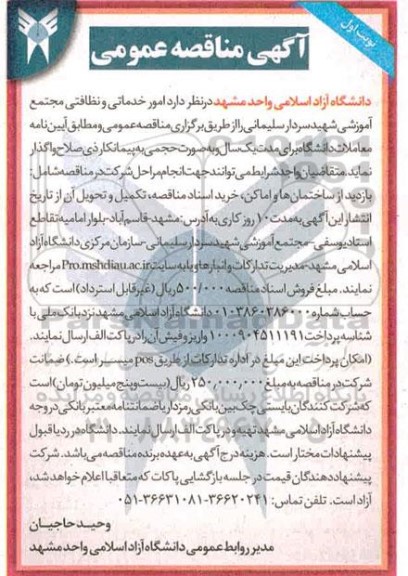 نوبت اول
آگهی مناقصه عمومی
دانشگاه آزاد اسلامی واحد مشهد درنظر دارد امور خدماتی و نظافتی مجتمع
آموزشی شهید سردار سلیمانی را از طریق برگزاری مناقصه عمومی و مطابق آیین نامه
معاملات دانشگاه برای مدت یک سال و به صورت حجمی به پیمانکار ذی صلاح واگذار
نماید. متقاضیان واجد شرایط می توانند جهت انجام مراحل شرکت در مناقصه شامل:
بازدید از ساختمان ها و اماکن، خرید اسناد مناقصه، تکمیل و تحویل آن از تاریخ
انتشار این آگهی به مدت ۱۰ روز کاری به آدرس: مشهد-قاسم آباد-بلوار امامیه تقاطع
استاد یوسفی-مجتمع آموزشی شهید سردار سلیمانی-سازمان مرکزی دانشگاه آزاد
اسلامی مشهد-مدیریت تدارکات و انبارها و یا به سایت Pro.mshdiau.ac.ir مراجعه
نمایند. مبلغ فروش اسناد مناقصه ۵۰۰/۰۰۰ ریال (غیرقابل استرداد) است که به
حساب شماره ۰۱۰۳۸۶۰۲۸۶۰۰۰ دانشگاه آزاد اسلامی مشهد نزد بانک ملی با
شناسه پرداخت ۱۰۰۰۹۰۴۵۱۱۱۹۱ واریز و فیش آن را در پاکت الف ارسال نمایند.
(امکان پرداخت این مبلغ در اداره تدارکات از طریق pos میسر است.) ضمانت
شرکت در مناقصه به مبلغ ۲۵۰,۰۰۰,۰۰۰ ریال (بیست و پنج میلیون تومان) است
که شرکت کنندگان بایستی چک بین بانکی رمزدار یا ضمانتنامه معتبر بانکی در وجه
دانشگاه آزاد اسلامی مشهد تهیه و در پاکت الف ارسال نمایند. دانشگاه در رد یا قبول
پیشنهادات مختار است. هزینه درج آگهی به عهده برنده مناقصه می باشد. شرکت
پیشنهاددهندگان قیمت در جلسه بازگشایی پاکات که متعاقبا اعلام خواهد شد،
آزاد است. تلفن تماس: ۳۶۶۲۰۲۴۱-۳۶۶۳۱۰۸۱-۰۵۱
وحید حاجیان
مدیر روابط عمومی دانشگاه آزاد اسلامی واحد مشهد